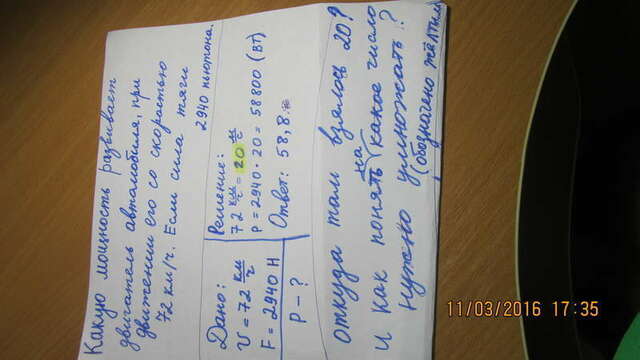 Какую мощность развивает
двигатель автомобиля, при
движении его со скоростью
72 км/ч. Если сила тяги
2940 ньютона.
Дано:
υ = 72 км/г
F = 2940 Н
P - ?
Решение:
72 км/г = 20 м/с
P = 2940 · 20 = 58800 (Вт)
Ответ: 58,8
откуда там взялось 20?
и как понять на какое число
нужно умножать?
(обозначено жёлтым
11/03/2016 17:35